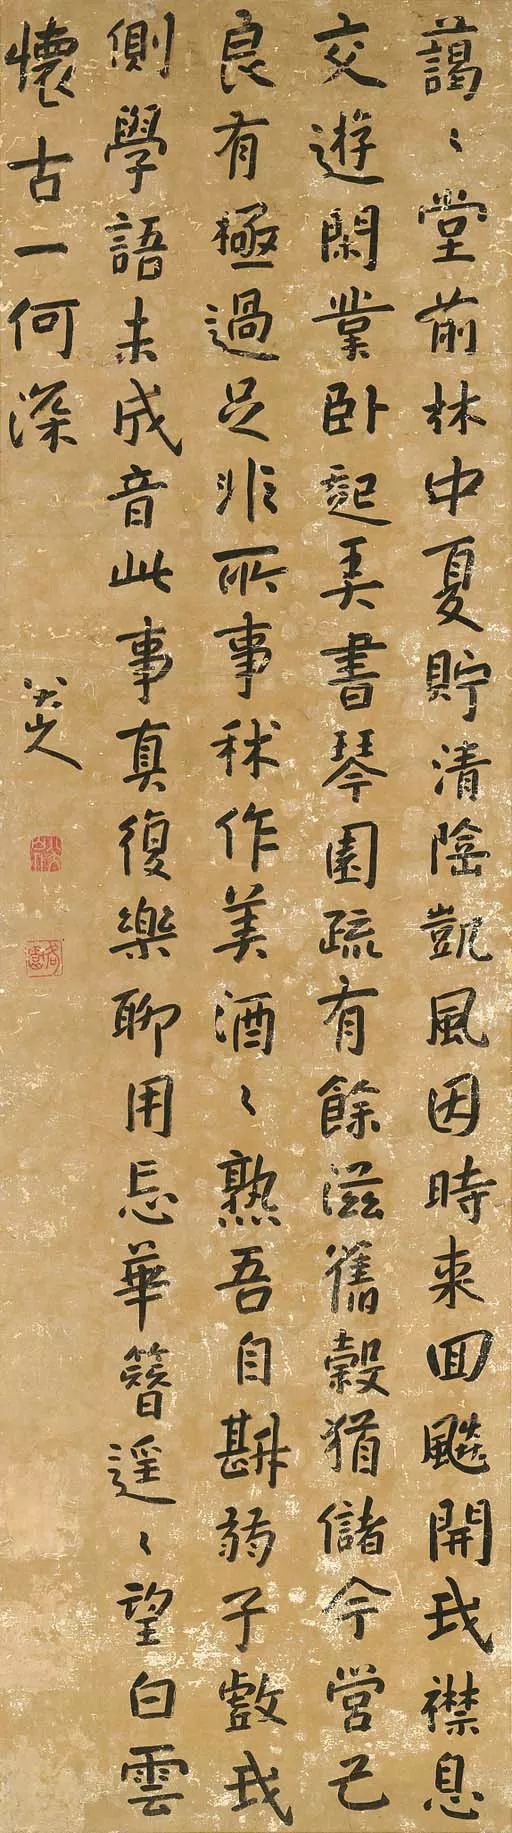 藹〻堂前林中夏貯清陰凱風因時来回飈開我襟息
交遊閑業卧起美書琴園蔬有餘滋舊穀猶儲今營己
良有極過足非所事秫作美酒〻熟吾自斟弱子戲我
側學語未成音此事真復樂聊用忘華簪遥〻望白雲
懷古一何深
八大山人